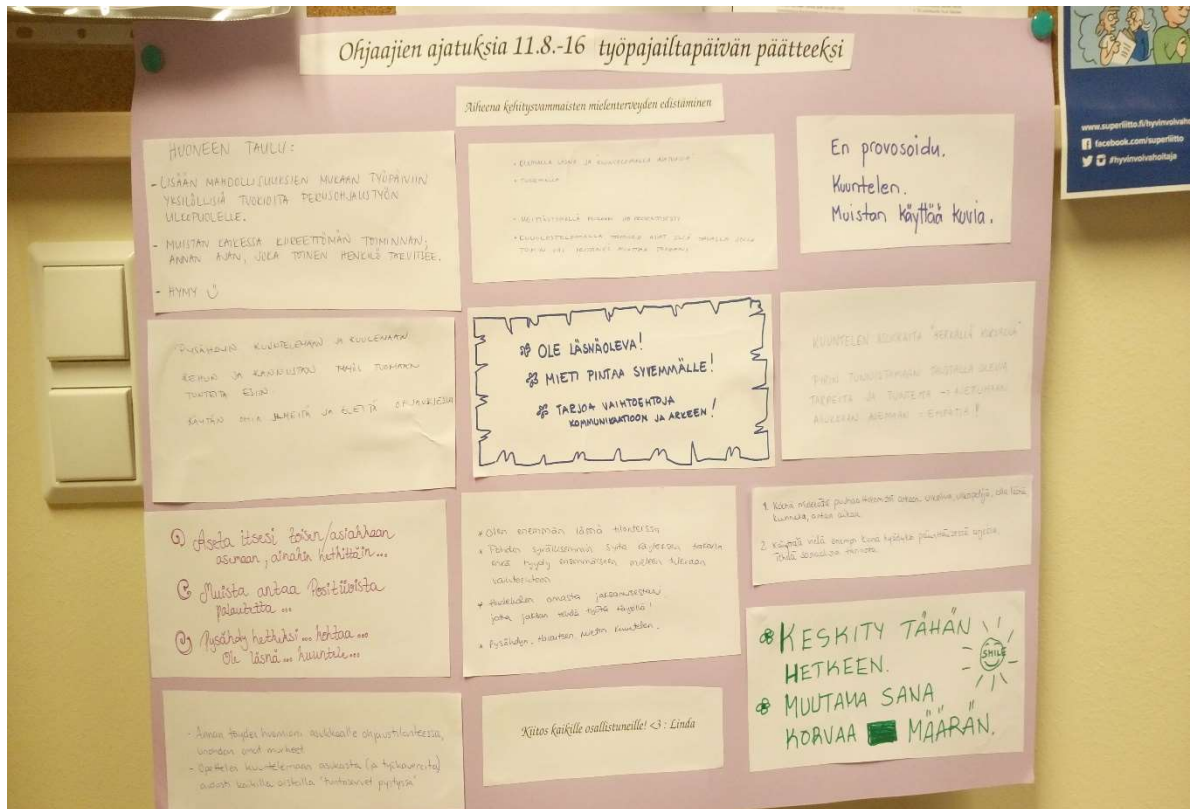 Ohjaajien ajatuksia 11.8.-16 työpajailtapäivän päätteeksi
Aiheena kehitysvammaisten mielenterveyden edistäminen
HUONEEN TAULU:
- LISÄÄN MAHDOLLISUUKSIEN MUKAAN TYÖPÄIVIIN
YKSILÖLLISIÄ TUOKIOITA PERUSOHJAUSTYÖN
ULKOPUOLELLE.
- MUISTAN KAIKESSA KIIREETTÖMÄN TOIMINNAN;
ANNAN AJAN, JOKA TOINEN HENKILÖ TARVITSEE.
- HYMY
• OLEMALLA LÄSNÄ JA KUUNTELEMALLA
• TUKEMALLA
En provosoidu.
Kuuntelen.
Muistan käyttää kuvia.
PYSÄHDYN KUUNTELEMAAN JA KUULEMAAN
KEHUN JA KANNUSTAN MYÖS TUOMAAN
TUNTEITA ESIIN.
KÄYTÄN OMIA ILMEITÄ JA ELEITÄ OHJAUKSESSA
OLE LÄSNÄOLEVA!
MIETI PINTAA SYVEMMÄLLE!
TARJOA VAIHTOEHTOJA
KOMMUNIKAATIOON JA ARKEEN!
KUUNTELEN ASUKKAITA "HERKÄLLÄ KORVALLA"
PYRIN TUNNISTAMAAN TAUSTALLA OLEVIA
TARPEITA JA TUNTEITA → ASETUMAAN
ASUKKAAN ASEMAAN = EMPATIA!
1) Aseta itsesi toisen/asiakkaan
asemaan, ainakin hetkittäin...
2) Muista antaa Positiivista
palautetta ...
3) Pysähdy hetkeksi ... kohtaa ...
Ole läsnä ... kuuntele ...
• Olen enemmän läsnä tilanteissa
• Pohdin syvällisemmin syitä käytöksen takana
enkä tyydy ensimmäiseen mieleen tulevaan
vaihtoehtoon
• Huolehdin omasta jaksamisestani
jotta jaksan tehdä työtä täysillä!
• Pysähdyn, havaitsen, mietin kuuntelen.
1.
2. Käyttää vielä enempi
KESKITY TÄHÄN
HETKEEN.
SMILE
MUUTAMA SANA
KORVAA MÄÄRÄN.
- Annan täyden huomioni asukkaalle ohjaustilanteessa,
unohdan omat murheet
- Opettelen kuuntelemaan asukasta (ja työkavereita)
aidosti kaikilla aisteilla "tuntosarvet pystyssä"
Kiitos kaikille osallistuneille! <3 : Linda
www.superliitto.fi/hyvinvoivaho
facebook.com/superliitto
#hyvinvoivahoitaja